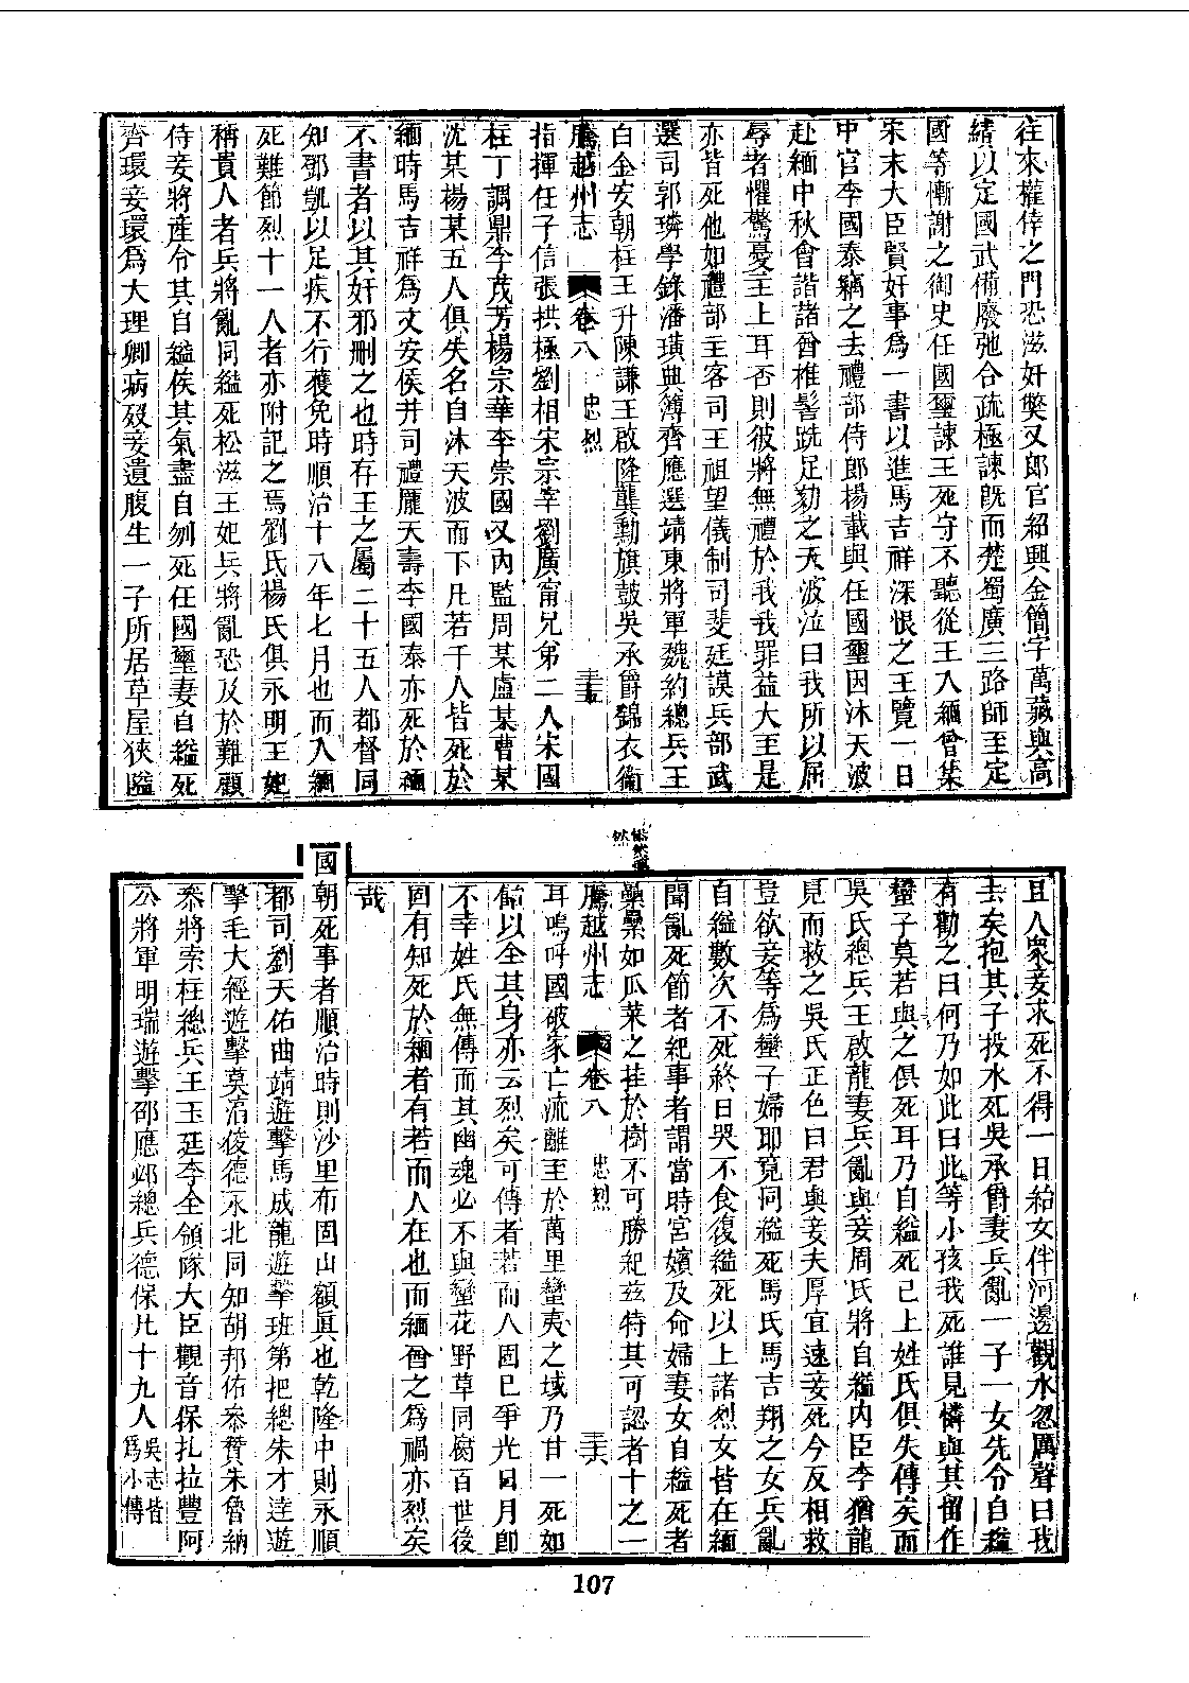 往來權倖之門恐滋奸獘又郎官紹興金簡字萬藏與高
績以定國武備廢弛合疏極諫旣而楚蜀廣三路師至定
國等慚謝之御史任國璽諫王死守不聽從王入緬曾集
宋末大臣賢奸事爲一書以進馬吉祥深恨之王覽一日
中官李國泰竊之去禮部侍郎楊載與任國璽因沐天波
赴緬中秋會諧諸酋椎髻跣足勃之天波泣曰我所以屈
辱者懼驚憂主上耳否則彼將無禮於我我罪益大至是
亦皆死他如禮部主客司王祖望儀制司斐廷謨兵部武
選司郭璘學錄潘璜典簿齊應選靖東將軍魏約總兵王
白金安朝柱王升陳謙王啟隆龔勳旗鼓吳承爵錦衣衞
騰越州志 卷八 忠烈 三十五
指揮任子信張拱極劉相宋宗宰劉廣甯兄弟二人宋國
柱丁調鼎李茂芳楊宗華李崇國又內監周某盧某曹某
沈某楊某五人俱失名自沐天波而下凡若千人皆死於
緬時馬吉祥爲文安侯井司禮龎天壽李國泰亦死於緬
不書者以其奸邪刪之也時存王之屬二十五人都督同
知鄧凱以足疾不行獲免時順治十八年七月也而入緬
死難節烈十一人者亦附記之焉劉氏楊氏俱永明王妃
稱貴人者兵將亂同縊死松滋王妃兵將亂恐及於難顧
侍妾將產令其自縊俟其氣盡自刎死任國璽妻自縊死
齊環妾環爲大理卿病歿妾遺腹生一子所居草屋狹隘
且人衆妾求死不得一日給女伴河邊觀水忽厲聲曰我
去矣抱其子投水死吳承爵妻兵亂一子一女先令自縊
有勸之曰何乃如此曰此等小孩我死誰見憐與其留作
蠻子莫若與之俱死耳乃自縊死己上姓氏俱失傳矣而
吳氏總兵王啟龍妻兵亂與妾周氏將自縊內臣李猶龍
見而救之吳氏正色曰君與妾夫厚宜速妾死今反相救
豈欲妾等爲蠻子婦耶竟同縊死馬氏馬吉翔之女兵亂
自縊數次不死終日哭不食復縊死以上諸烈女皆在緬
聞亂死節者紀事者謂當時宮嬪及命婦妻女自縊死者
纍纍如瓜菓之挂於樹不可勝紀兹特其可認者十之一
騰越州志 卷八 忠烈 三十六
耳嗚呼國破家亡流離至於萬里蠻夷之域乃甘一死如
飴以全其身亦云烈矣可傳者若而人固巳爭光日月卽
不幸姓氏無傳而其幽魂必不與蠻花野草同腐百世後
回有知死於緬者有若而人在也而緬酋之爲禍亦烈矣
哉
國朝死事者順治時則沙里布固山額眞也乾隆中則永順
都司劉天佑曲靖遊擊馬成龍遊擊班第把總朱才逹遊
擊毛大經遊擊莫濬俊德永北同知胡邦佑叅贊朱魯納
叅將索柱總兵王玉廷李全領隊大臣觀音保扎拉豐阿
公將軍明瑞遊擊邵應邲總兵德保凡十九人吳志皆爲小傳
107